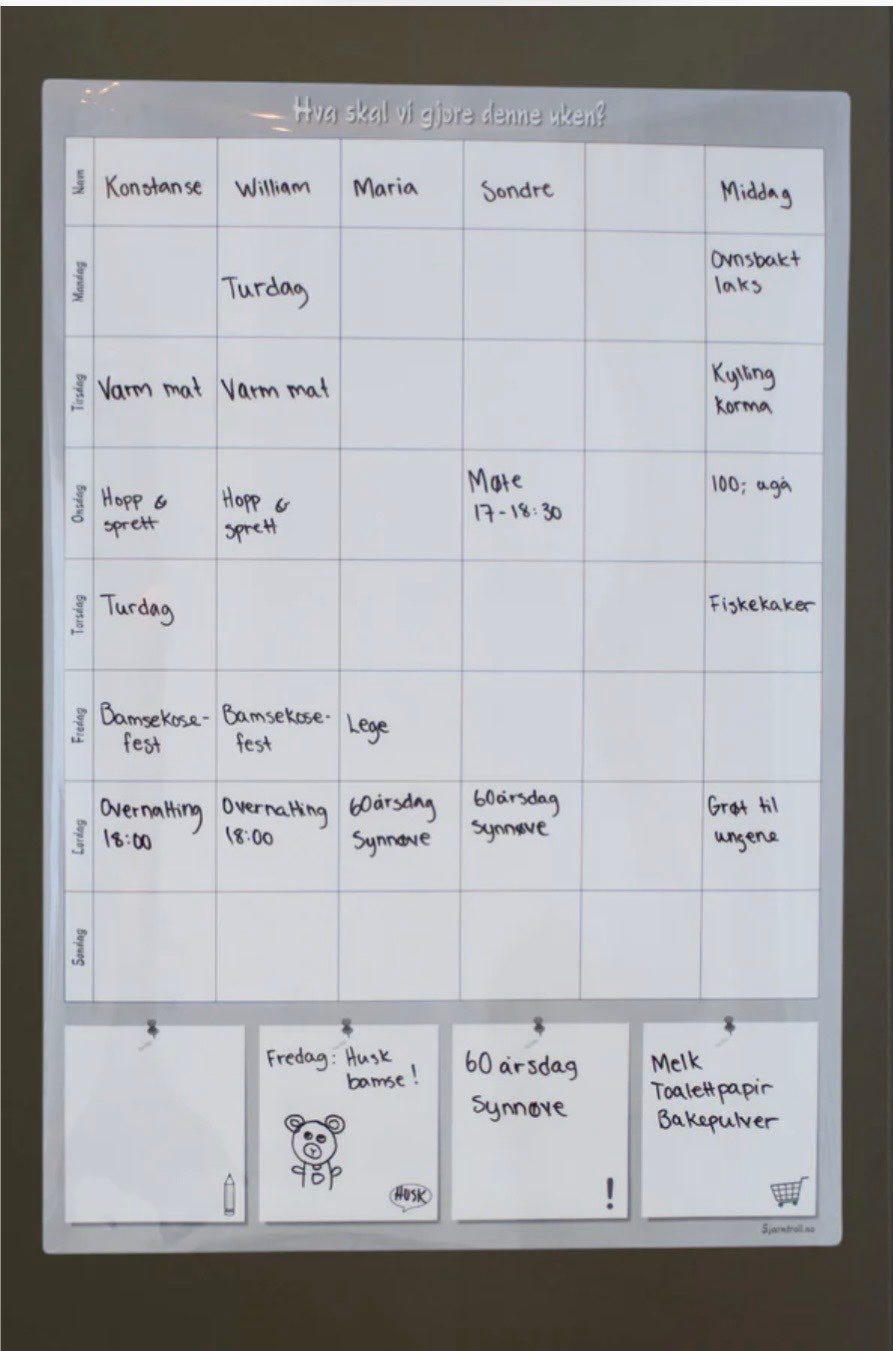 Hva skal vi gjøre denne uken?
Navn Konstanse William Maria Sondre Middag
Mandag Turdag Ovnsbakt
laks
Tirsdag Varm mat Varm mat Kylling
korma
Onsdag Hopp & Hopp & Møte 100; agå
sprett sprett 17-18:30
Torsdag Turdag Fiskekaker
Fredag Bamsekose- Bamsekose- Lege
fest fest
Lørdag Overnatting Overnatting 60årsdag 60årsdag Grøt til
18:00 18:00 Synnøve Synnøve ungene
Søndag
Fredag: Husk
bamse!
HUSK
60 årsdag
Synnøve
!
Melk
Toalettpapir
Bakepulver
Sjarmtroll.no